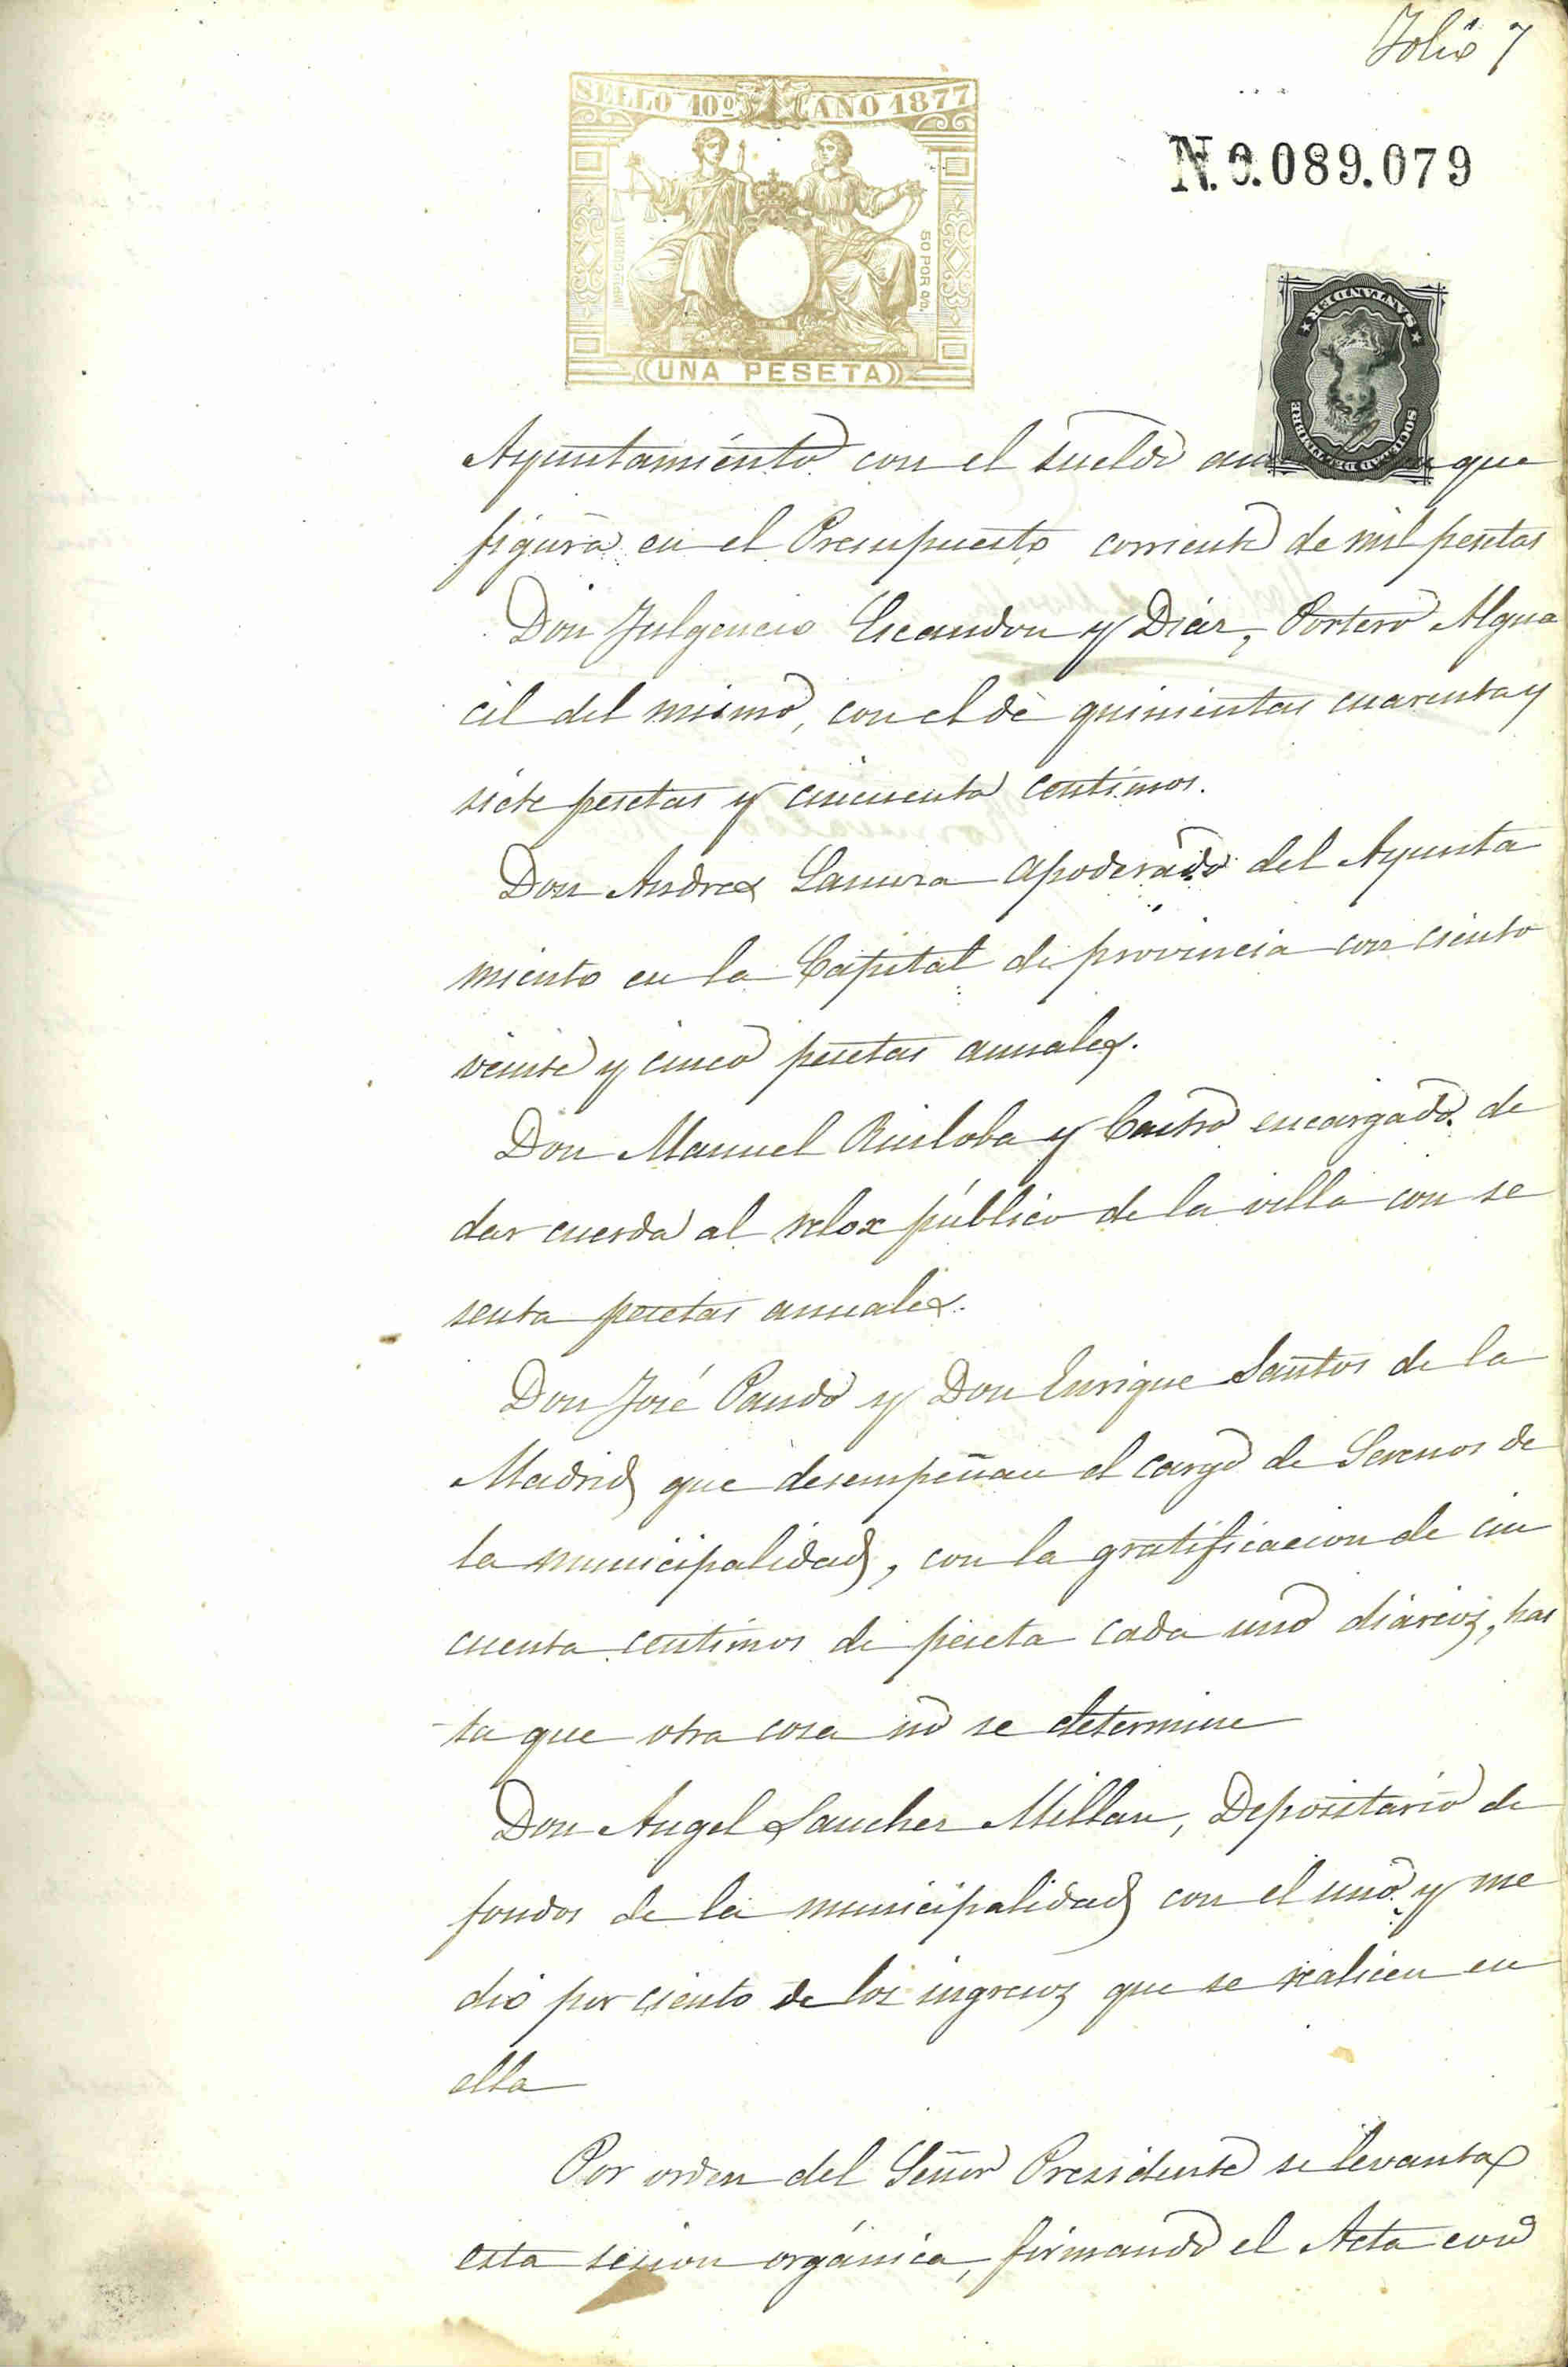 Folio 7
SELLO 10º AÑO 1877
N.0.089.079
IMPTO GUERRA
50 POR 0/0.
UNA PESETA
SANTANDER
SOCIEDAD DEL TIMBRE
Ayuntamiento con el sueldo que
figura en el Presupuesto corriente de mil pesetas
Don Fulgencio Escandon y Diaz, Portero Algua
cil del mismo, con el de quinientas cuarenta y
siete pesetas y cincuenta centimos.
Don Andres Lamera apoderado del Ayunta
miento en la Capital de provincia con ciento
veinte y cinco pesetas anuales.
Don Manuel Ruiloba y Castro encargado de
dar cuerda al relox público de la villa con se
senta pesetas anuales.
Don José Pando y Don Enrique Santos de la
Madrid que desempeñan el cargo de Serenos de
la municipalidad, con la gratificacion de cin
cuenta centimos de peseta cada uno diarios, has
ta que otra cosa no se determine
Don Angel Sanchez Millan, Depositario de
fondos de la municipalidad con el uno y me
dio por ciento de los ingresos que se realicen en
ella
Por orden del Señor Presidente se levanta
esta sesion orgánica, firmando el Acta con